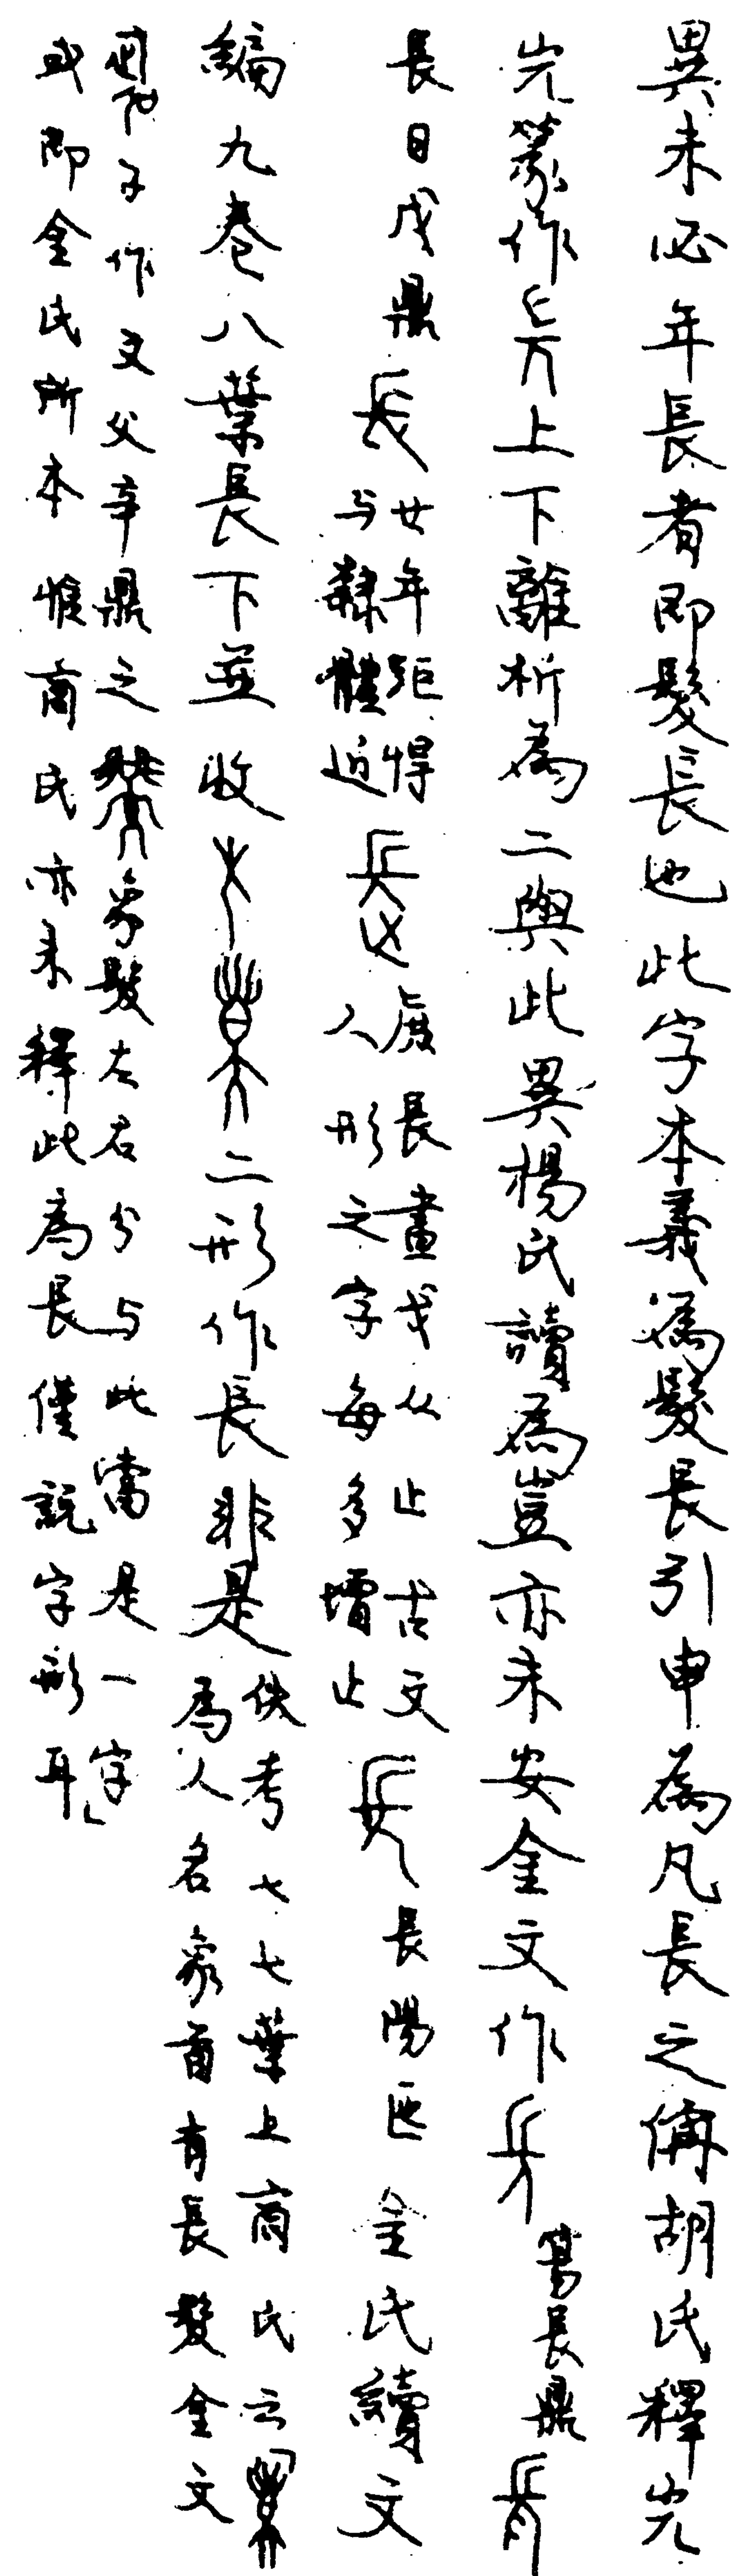 異未必年長者即髮長也此字本義為髮長引申為凡長之偁胡氏釋岸
岸篆作上下離析為二與此異楊氏讀為豈亦未安金文作 寡長鼎
長日戊鼎 廿年距悍
与隸體近 虘長畫戈从止古文
人形之字每多增止 長陽匜 金氏續文
編九卷八葉長下並收 二形作長非是佚考七七葉上商氏云
為人名象首有長髮金文
子作文父辛鼎之 象髮左右分与此當是一字」
或即金氏所本惟商氏亦未釋此為長僅說字形耳」